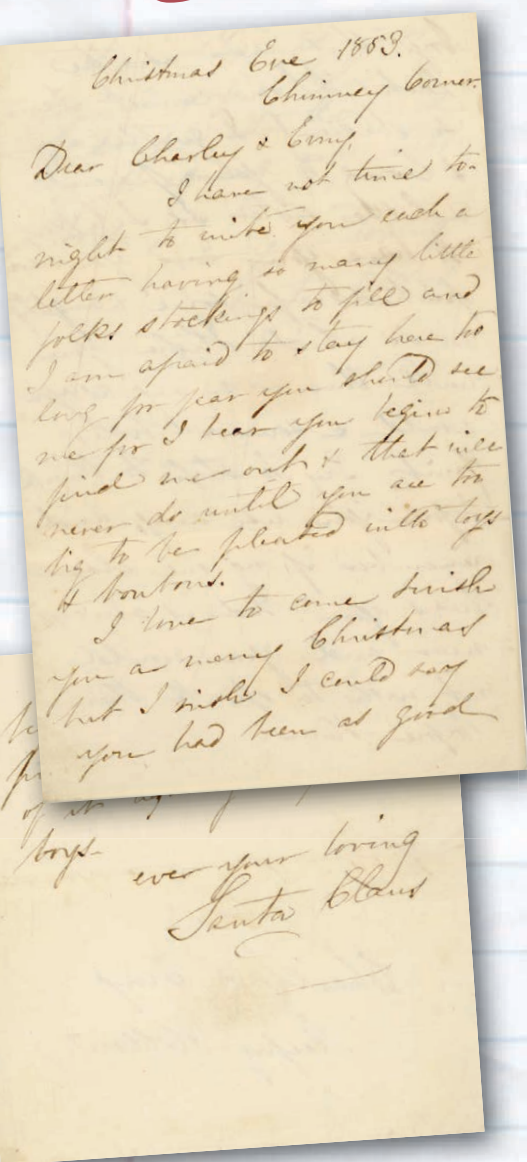 Christmas Eve 1853.
Chimney Corner.
Dear Charley & Emy,
I have not time to-
night to write you each a
letter having so many little
folks stockings to fill and
I am afraid to stay here too
long for fear you should see
me for I hear you begin to
find me out & that will
never do until you are too
big to be pleased with toys
& bonbons.
I love to come & wish
you a merry Christmas
but I wish I could say
you had been as good
of it
boys.
ever your loving
Santa Claus